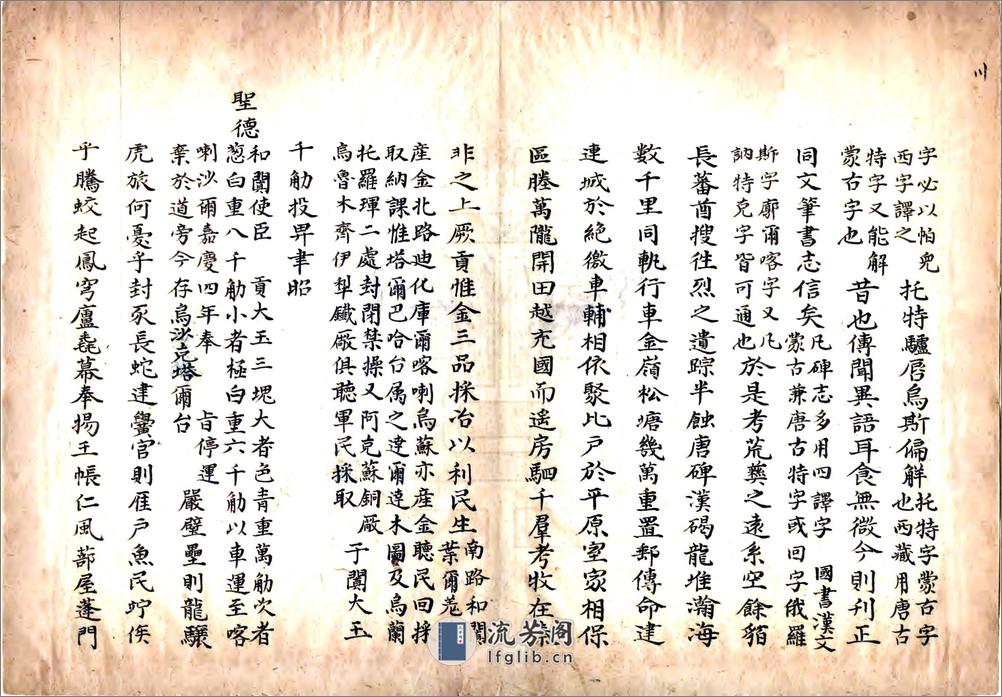 字必以帕兒
西字譯之
托特驢唇烏斯偏觧
托特字蒙古字
也西藏用唐古
特字又能解
蒙古字也
昔也傳聞異語耳食無徵今則刋正
同文筆書志信矣
凡碑志多用四譯字 國書漢文
蒙古兼唐古特字或回字俄羅
斯字廓爾喀字又凡
訥特克字皆可通也
於是考荒藝之遠系空餘貊
長蕃酋搜徃烈之遺踪半蝕唐碑漢碣龍堆瀚海
數千里同軌行車金嶺松塘幾萬重置郵傳命建
連城於絶徼車輔相依聚比戸於平原室家相保
區塍萬隴開田越充國而遥房駟千羣考牧在
非之上厥貢惟金三品採冶以利民生
南路和闐
葉爾羌
産金北路迪化庫爾喀喇烏蘇亦産金聽民回採
取納課惟塔爾巴哈台属之達爾達木圖及烏蘭
托羅琿二處封閉禁採又阿克蘇銅厰
烏魯木齊伊犁鐵厰俱聽軍民採取
于闐大玉
千觔投畀聿昭
聖德
和闐使臣 貢大玉三塊大者色青重萬觔次者
葱白重八千觔小者極白重六千觔以車運至喀
喇沙爾嘉慶四年奉 旨停運
棄於道旁今存烏沙克塔爾台
嚴壁壘則龍驤
虎旅何憂乎封豕長蛇建黌宫則厓戸魚民竚俟
乎騰蛟起鳳穹廬毳幕奉揚玉帳仁風蔀屋蓬門
流芳阁
lfglib.cn